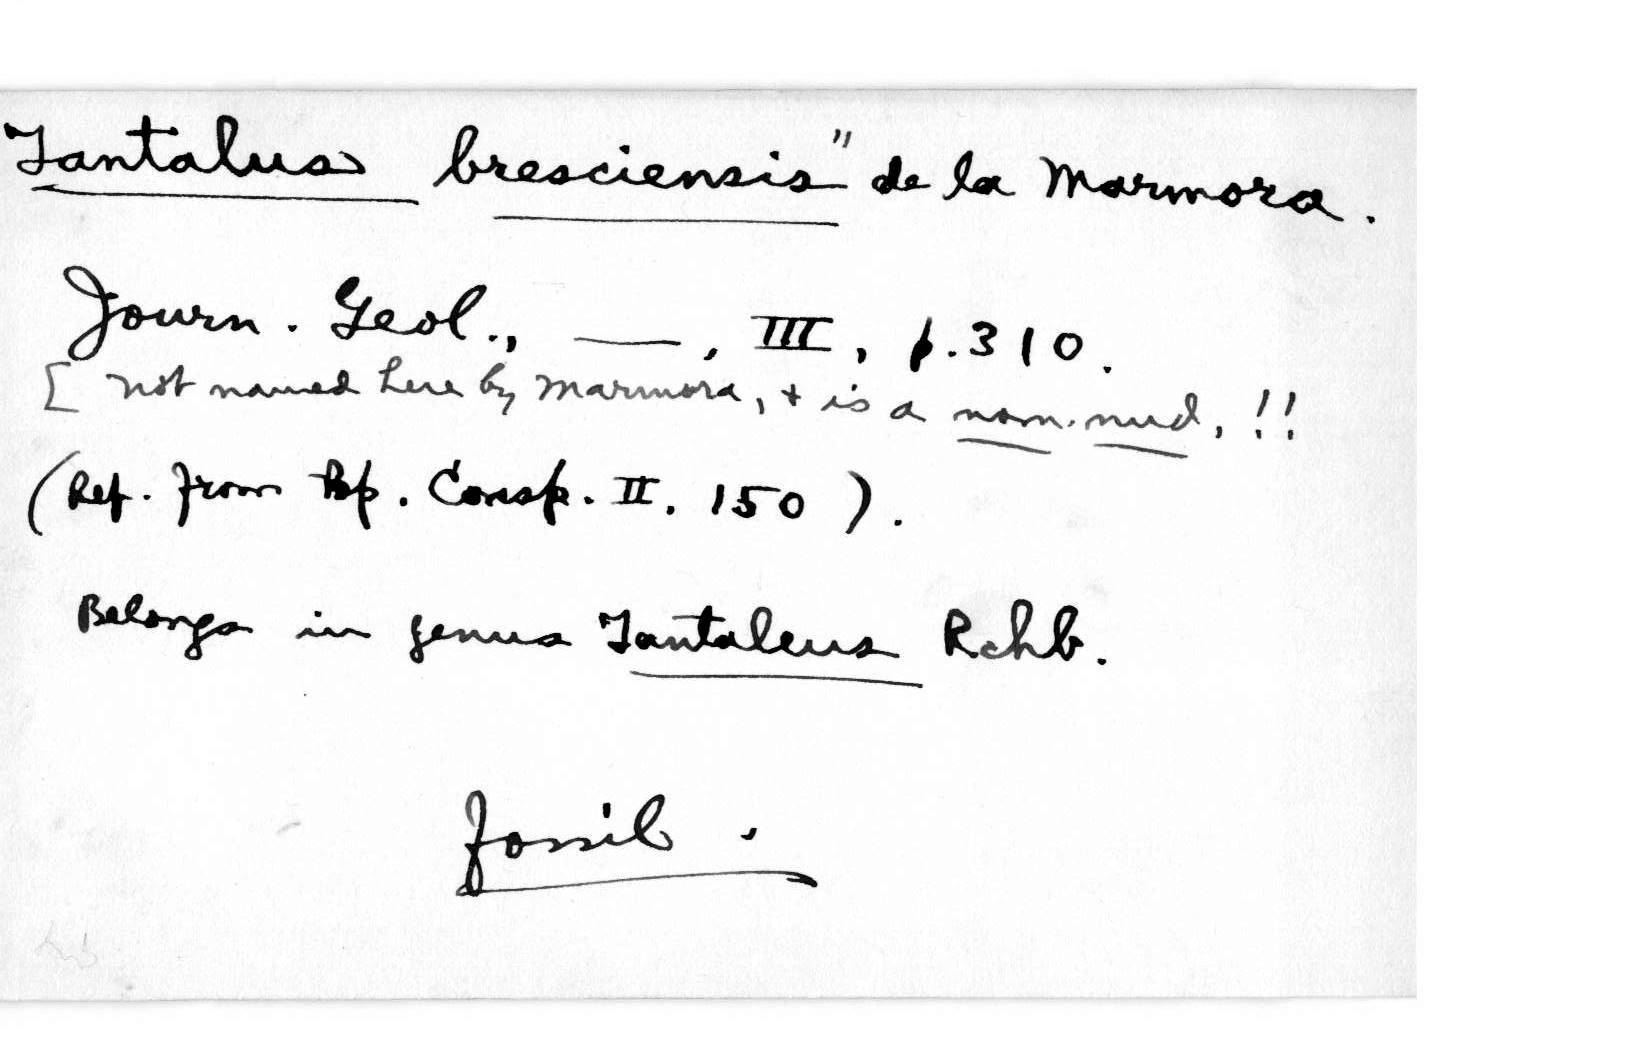 "Tantalus bresciensis" de la Marmora.
Journ. Geol., —, III, p. 310.
[ not named here by Marmora, + is a nom. nud, !!
(Ref. from Bp. Consp. II. 150 ).
Belongs in genus Tantaleus Rchb.
Fossil.